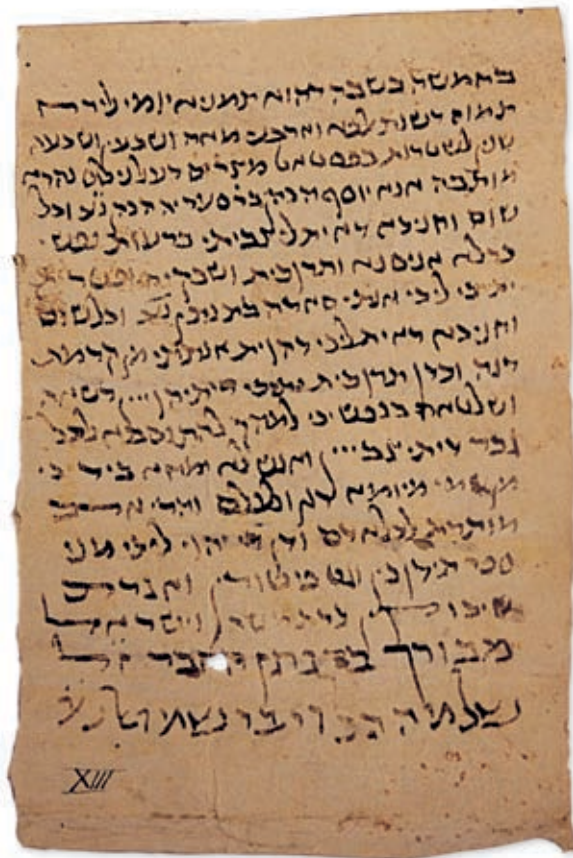 בחמשה בשבה דהוא תמניא יומי לירח
תמוז דשנת אלפא וארבע מאה ושבעין ושבעה
שנין לשטרות בפסטאט מצרים דעל נילוס נהרא
מותבה אנא יוסף הכהן בר סעדיה הכהן נע וכל
שום וחניכא דאית לי צביתי ברעות נפשי
בדלא אניסנא ותרוכית ושבקית ופטרית
יתיכי ליכי אנתי סארה בת נע וכל שום
וחניכא דאית ליכי דהוית אנתתי מן קדמת
דנה וכדן תרוכית יתיכי דיתיהויין רשאה
ושלטאה בנפשיכי למהך להתנסבא לכל
גבר דיתיצביין ואנש לא ימחא בידיכי
מן שמי מיומא דנן ולעלם והרי את
מותרת לכל אדם ודן דיהוי ליכי מני
ספר תירוכין וגט פיטורין ואגרת
שיבוקין כדת משה וישראל
מבורך נתן החבר זל
שלמיה נע
XIII